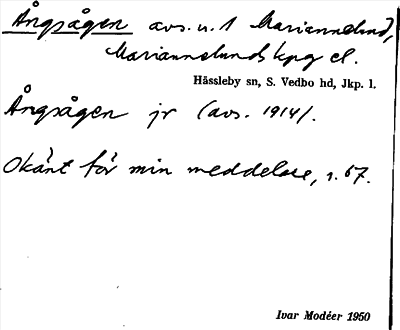 Ångsågen avs. u. 1 Mariannelund,
Mariannelunds kpg el.
Hässleby sn, S. Vedbo hd, Jkp. l.
Ångsågen jr (avs. 1914).
Okänt för min meddelare, f. 67.
Ivar Modéer 1950